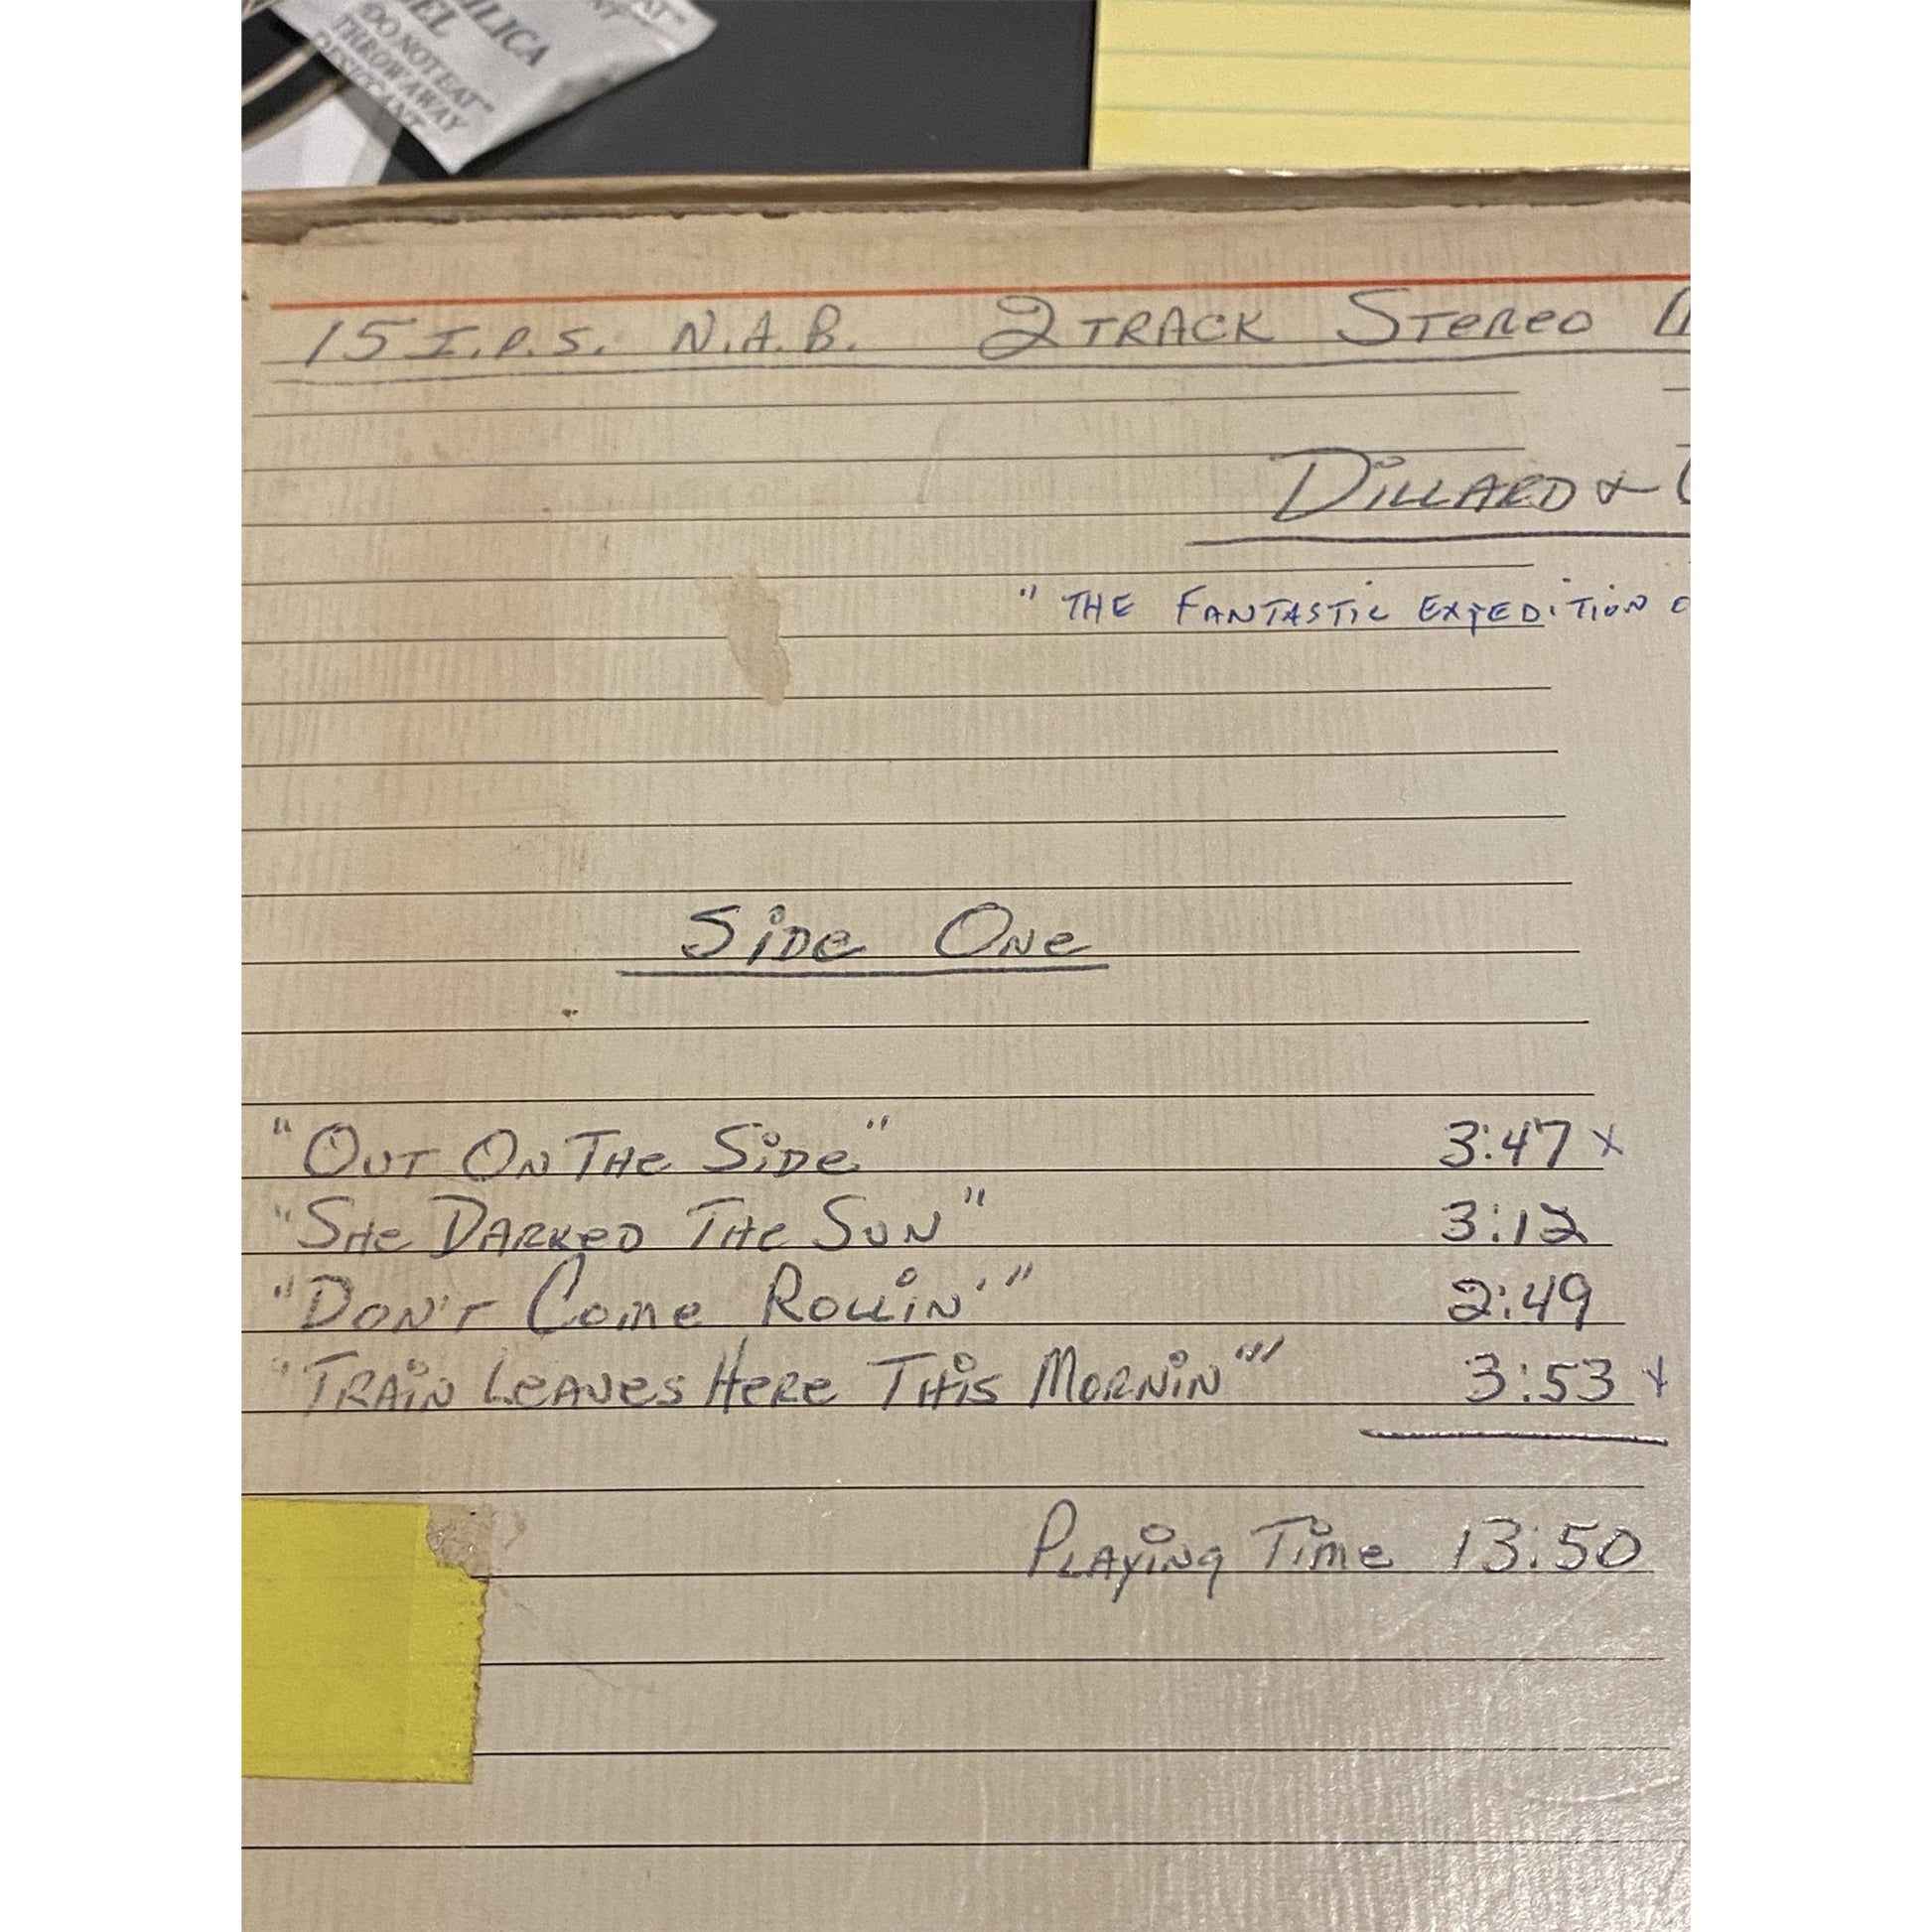 SILICA
GEL
"DO NOT EAT"
THROW AWAY
DESICCANT
15 I.P.S. N.A.B. 2 TRACK STEREO
DILLARD &
"THE FANTASTIC EXPEDITION
SIDE ONE
"OUT ON THE SIDE" 3:47 x
"SHE DARKED THE SUN" 3:12
"DON'T COME ROLLIN'" 2:49
"TRAIN LEAVES HERE THIS MORNIN'" 3:53 x
PLAYING TIME 13:50